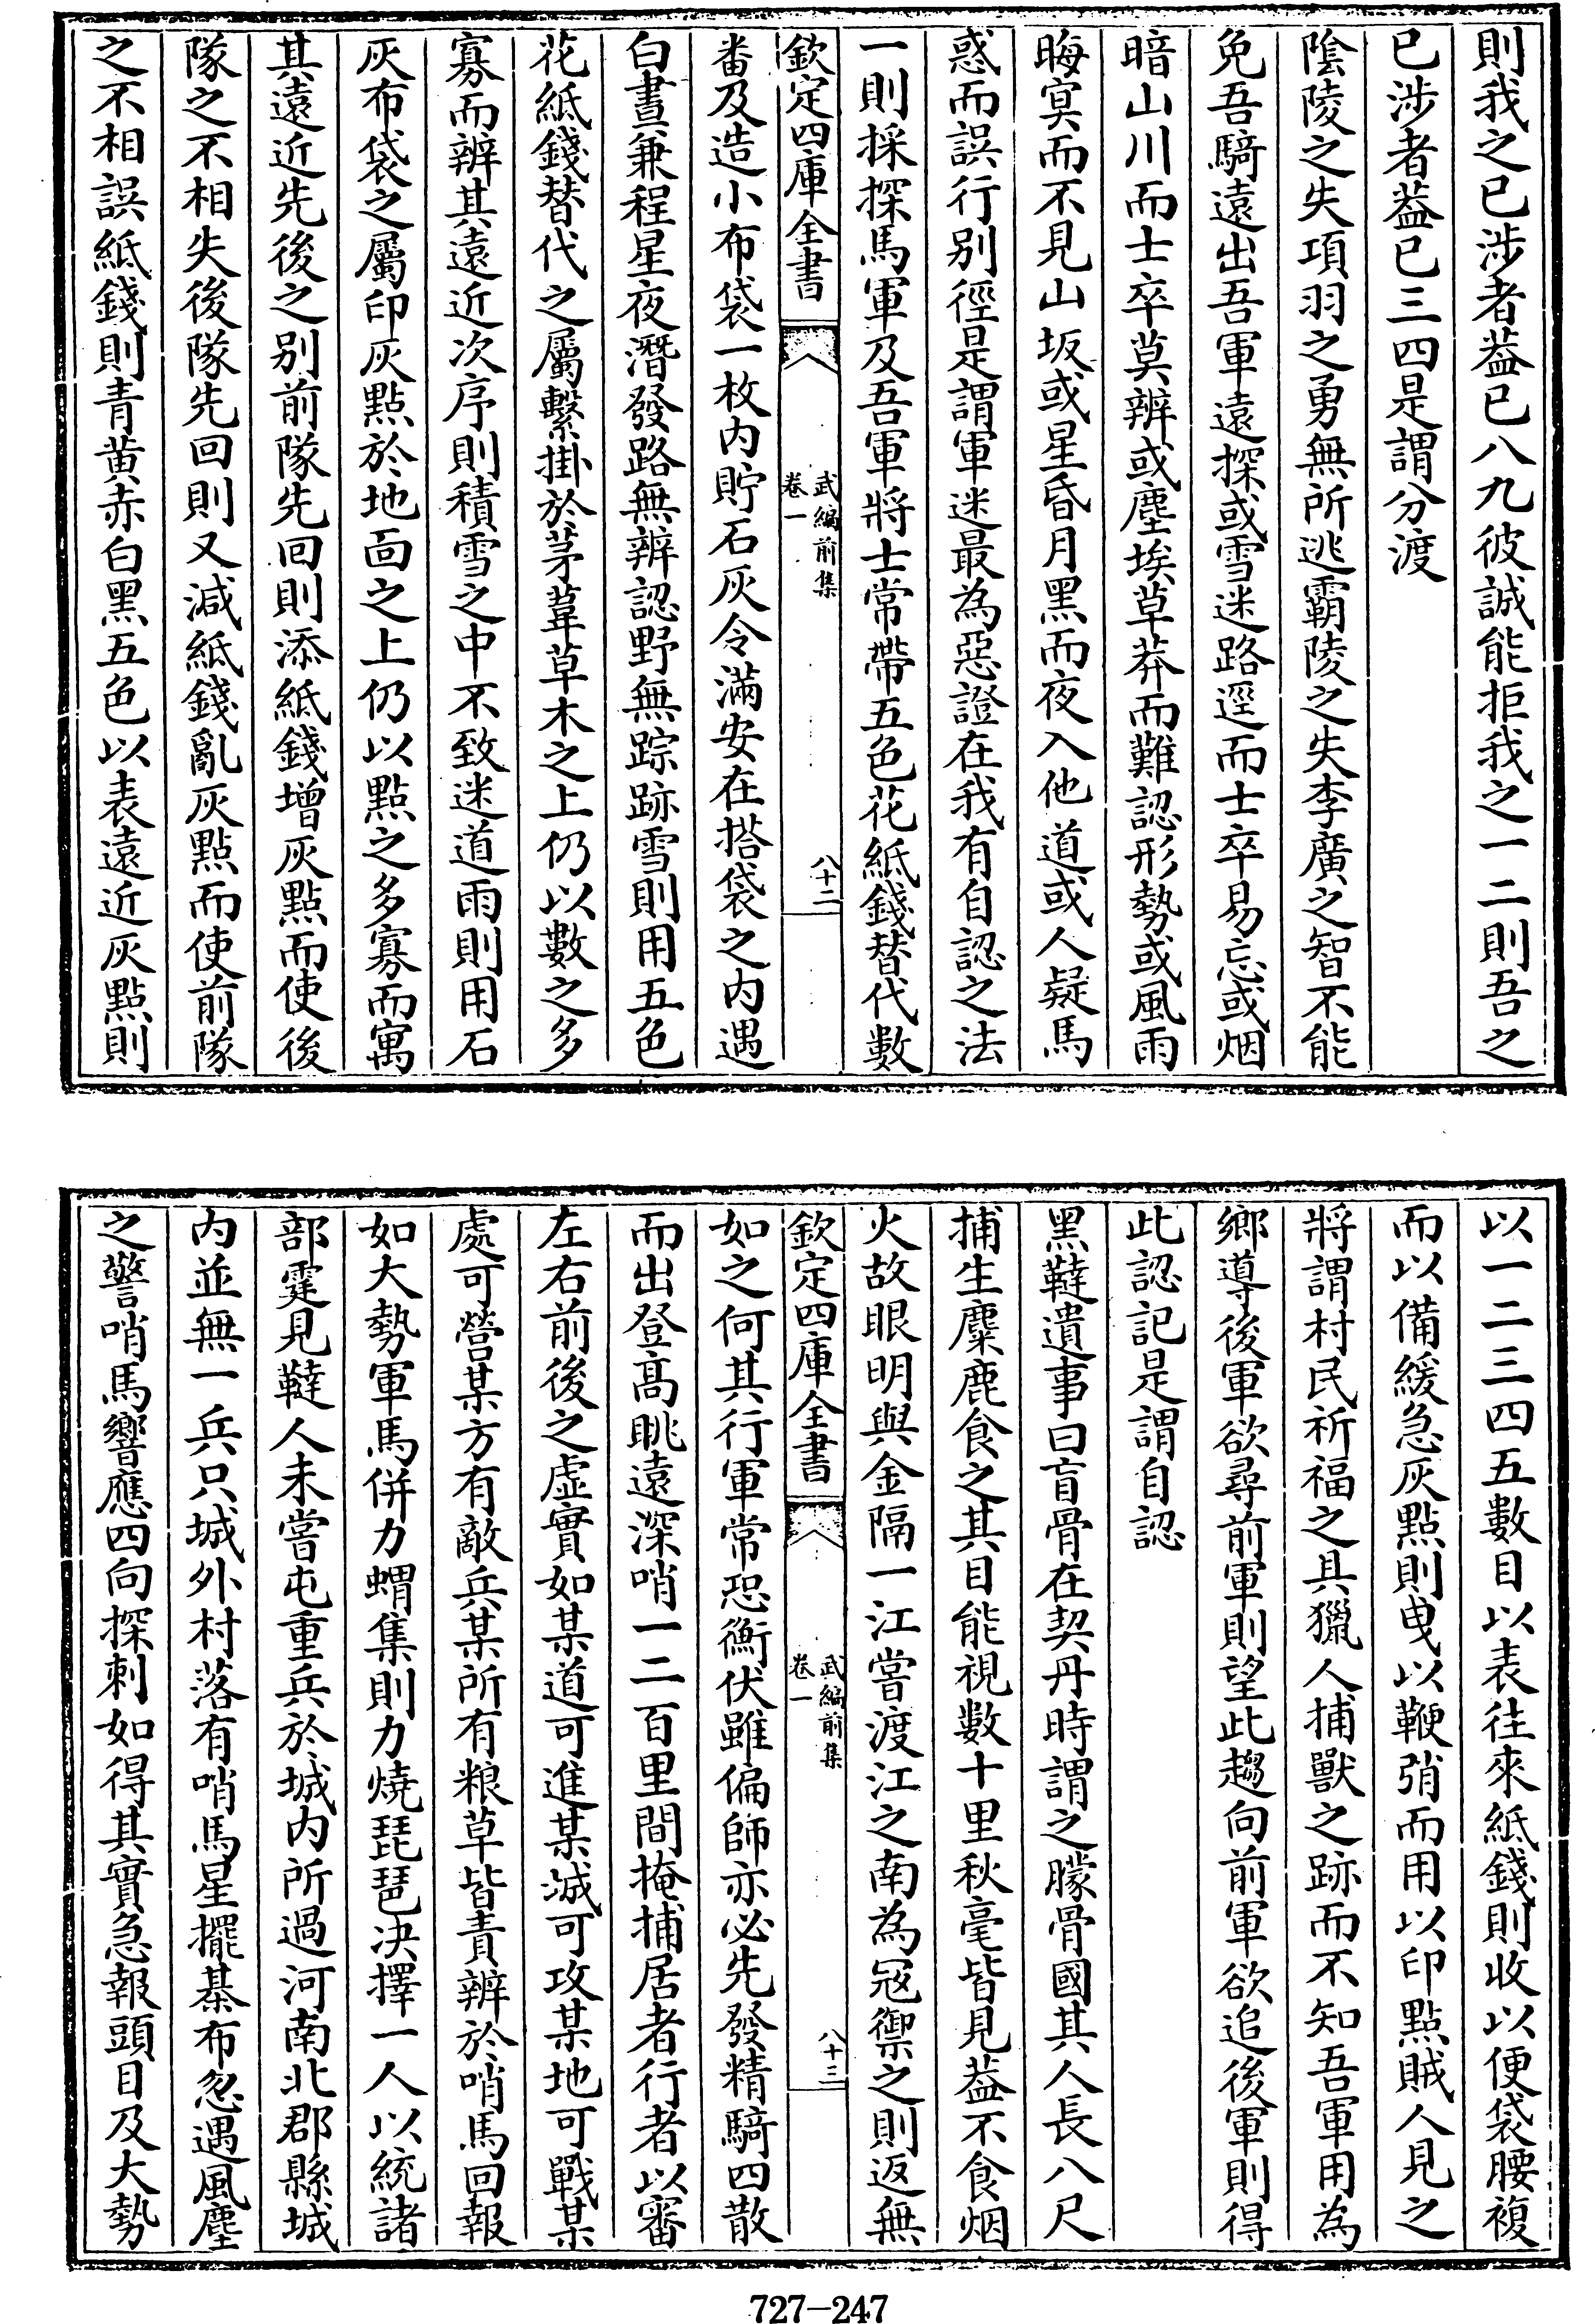 則我之已涉者葢已八九彼誠能拒我之一二則吾之
已涉者葢已三四是謂分渡
陰陵之失項羽之勇無所逃霸陵之失李廣之智不能
免吾騎遠出吾軍遠探或雪迷路逕而士卒易忘或烟
暗山川而士卒莫辨或塵埃草莽而難認形勢或風雨
晦㝠而不見山坂或星昏月黑而夜入他道或人疑馬
惑而誤行别徑是謂軍迷最為惡證在我有自認之法
一則採探馬軍及吾軍將士常帶五色花紙錢替代數
欽定四庫全書
武編前集
卷一
八十二
番及造小布袋一枚内貯石灰令滿安在搭袋之内遇
白晝兼程星夜潛發路無辨認野無踪跡雪則用五色
花紙錢替代之屬繫掛於茅葦草木之上仍以數之多
寡而辨其遠近次序則積雪之中不致迷道雨則用石
灰布袋之屬印灰點於地面之上仍以點之多寡而寓
其遠近先後之别前隊先回則添紙錢增灰點而使後
隊之不相失後隊先回則又減紙錢亂灰點而使前隊
之不相誤紙錢則青黄赤白黑五色以表遠近灰點則
以一二三四五數目以表往來紙錢則收以便袋腰複
而以備緩急灰點則曳以鞭弰而用以印點賊人見之
將謂村民祈福之具獵人捕獸之跡而不知吾軍用為
鄉導後軍欲尋前軍則望此趨向前軍欲追後軍則得
此認記是謂自認
黑韃遺事曰盲骨在契丹時謂之朦骨國其人長八尺
捕生麋鹿食之其目能視數十里秋毫皆見葢不食烟
火故眼明與金隔一江嘗渡江之南為冦禦之則返無
欽定四庫全書
武編前集
卷一
八十三
如之何其行軍常恐衝伏雖偏師亦必先發精騎四散
而出登髙眺遠深哨一二百里間掩捕居者行者以審
左右前後之虚實如某道可進某城可攻某地可戰某
處可營某方有敵兵某所有粮草皆責辨於哨馬回報
如大勢軍馬併力蝟集則力燒琵琶决擇一人以統諸
部霆見韃人未嘗屯重兵於城内所過河南北郡縣城
内並無一兵只城外村落有哨馬星擺棊布忽遇風塵
之警哨馬響應四向探刺如得其實急報頭目及大勢
727-247